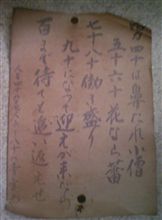 四十は鼻たれ小僧
五十六十花なら蕾
七十八十働き盛り
九十になって迎えが来たら
百まで待てと追い返せ